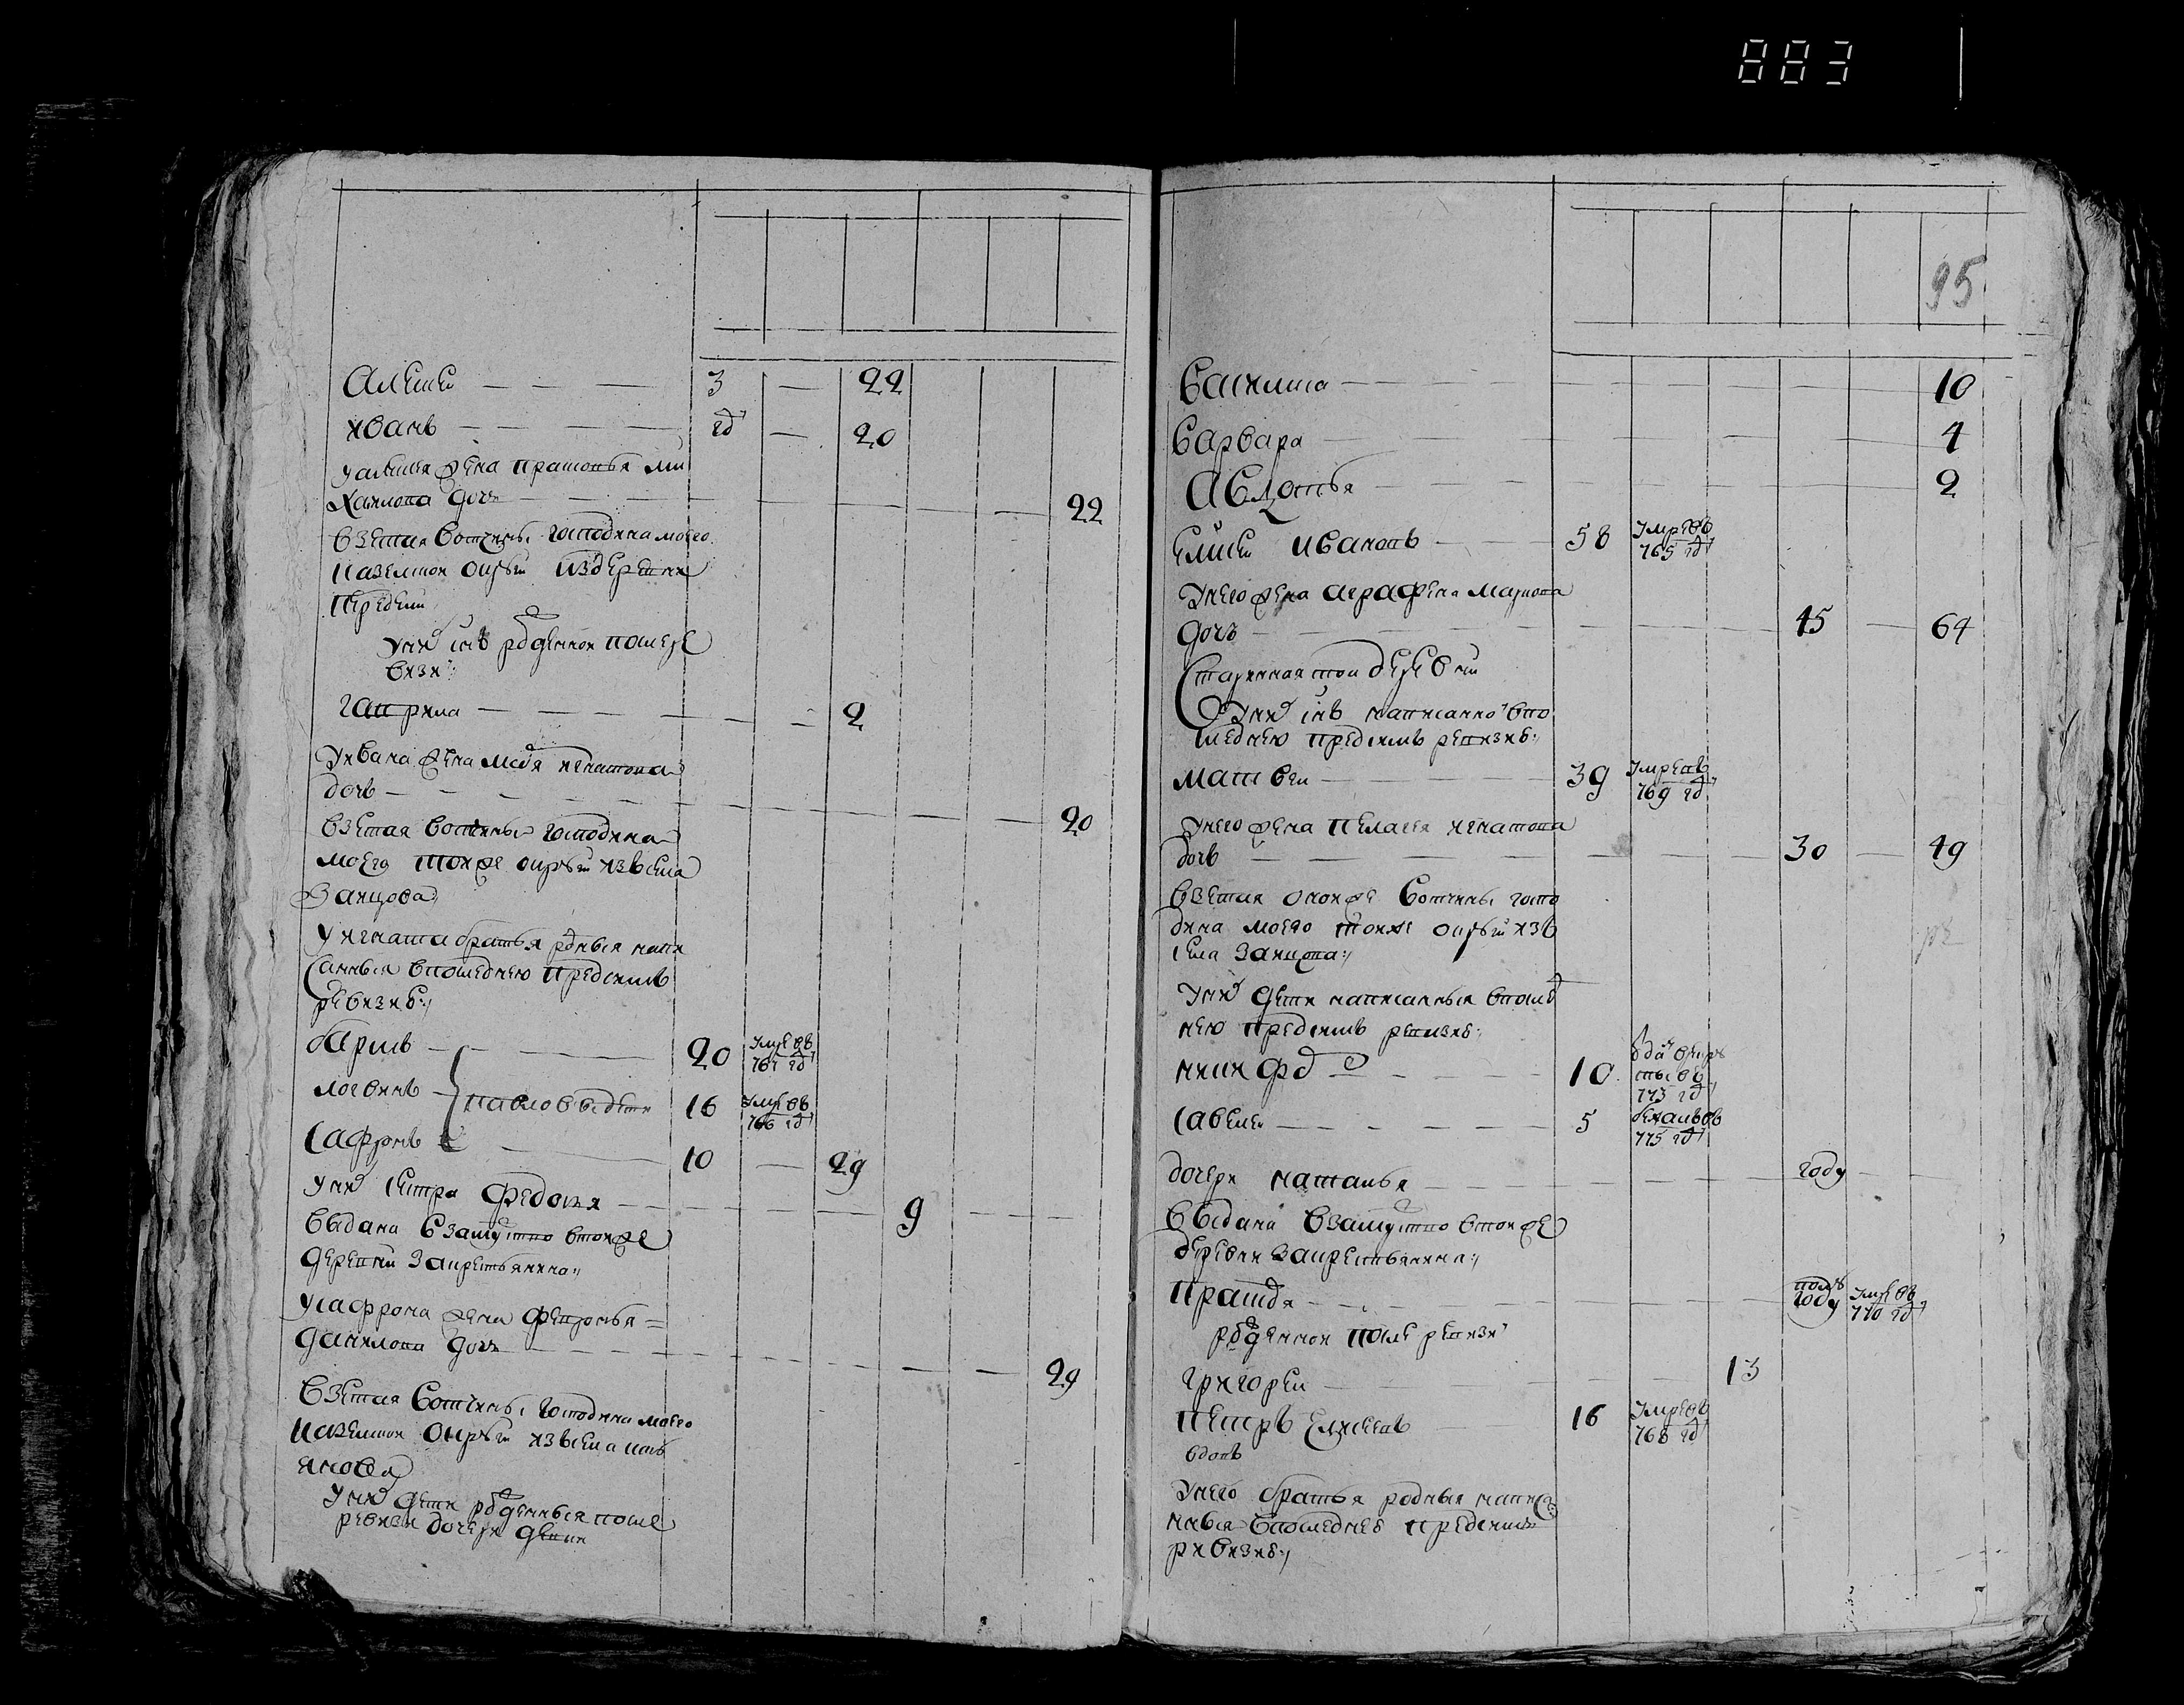 883
Алексей — — — 3 — 22
Иванъ — — — — гд — 20
у алексея жена праско​вья ми
хаилова дочь — — — 22
взетая вотчины господина моего
казенной округи из деревни
у них сынъ рожденной после ре
визи:
гаврила — — — — 2
у ивана жена марья игнатова
дочь — — — — 20
взетая вотчины господина
моего тойже округи изъ села
Заицова
у игната братья родныя напи
санныя в последнею пред симъ
ревизиѣ:
20 умре въ 761 гд
логвинъ — павловы дети 16 умре въ 766 гд
Сафронъ — 10 — 29
у них сестра федосья — — — 9
выдана в замужство в тойже
деревни за крестьянина:
у сафрона жена февронья =
данилова дочь — — — 29
взетая вотчины господина моего
казенной округи изъ села
у них дети рожденныя после
ревизи дочери девки
95
Василиса — — — 10
варвара — — — 4
Авдотья — — — 2
елисеи Ивановъ — — 58 умре въ 765 гд
у него жена аграфена маркова
дочь — — — 45 — 64
Старинная той деревни
у них сынъ написанно в по
следнею пред симъ ревизиѣ:
матвеи — 39 умре въ 769 гд
у него жена пелагея игнатова
дочь — — — 30 — 49
взетая оной же вотчины госпо
дина моего тойже округи изъ
села Заицова:
у них дети написанныя в послед
нею пред симъ ревизиѣ:
никифр — — — 10 отдан в рекру
ты въ
773 гд
Савелеи — — — 5 бежалъ въ
775 гд
дочери наталья — — — году
выдана в замужство в тойже
деревни за крестьянина:
Прасковья — — — полъ году умре въ 770 гд
рожденной после ревизи
григореи — — — 13
петръ елисеевъ — 16 умре въ 768 гд
вдовъ
у него братья родныя написа
нныя в последнеѣ пред симъ
ривизиѣ: